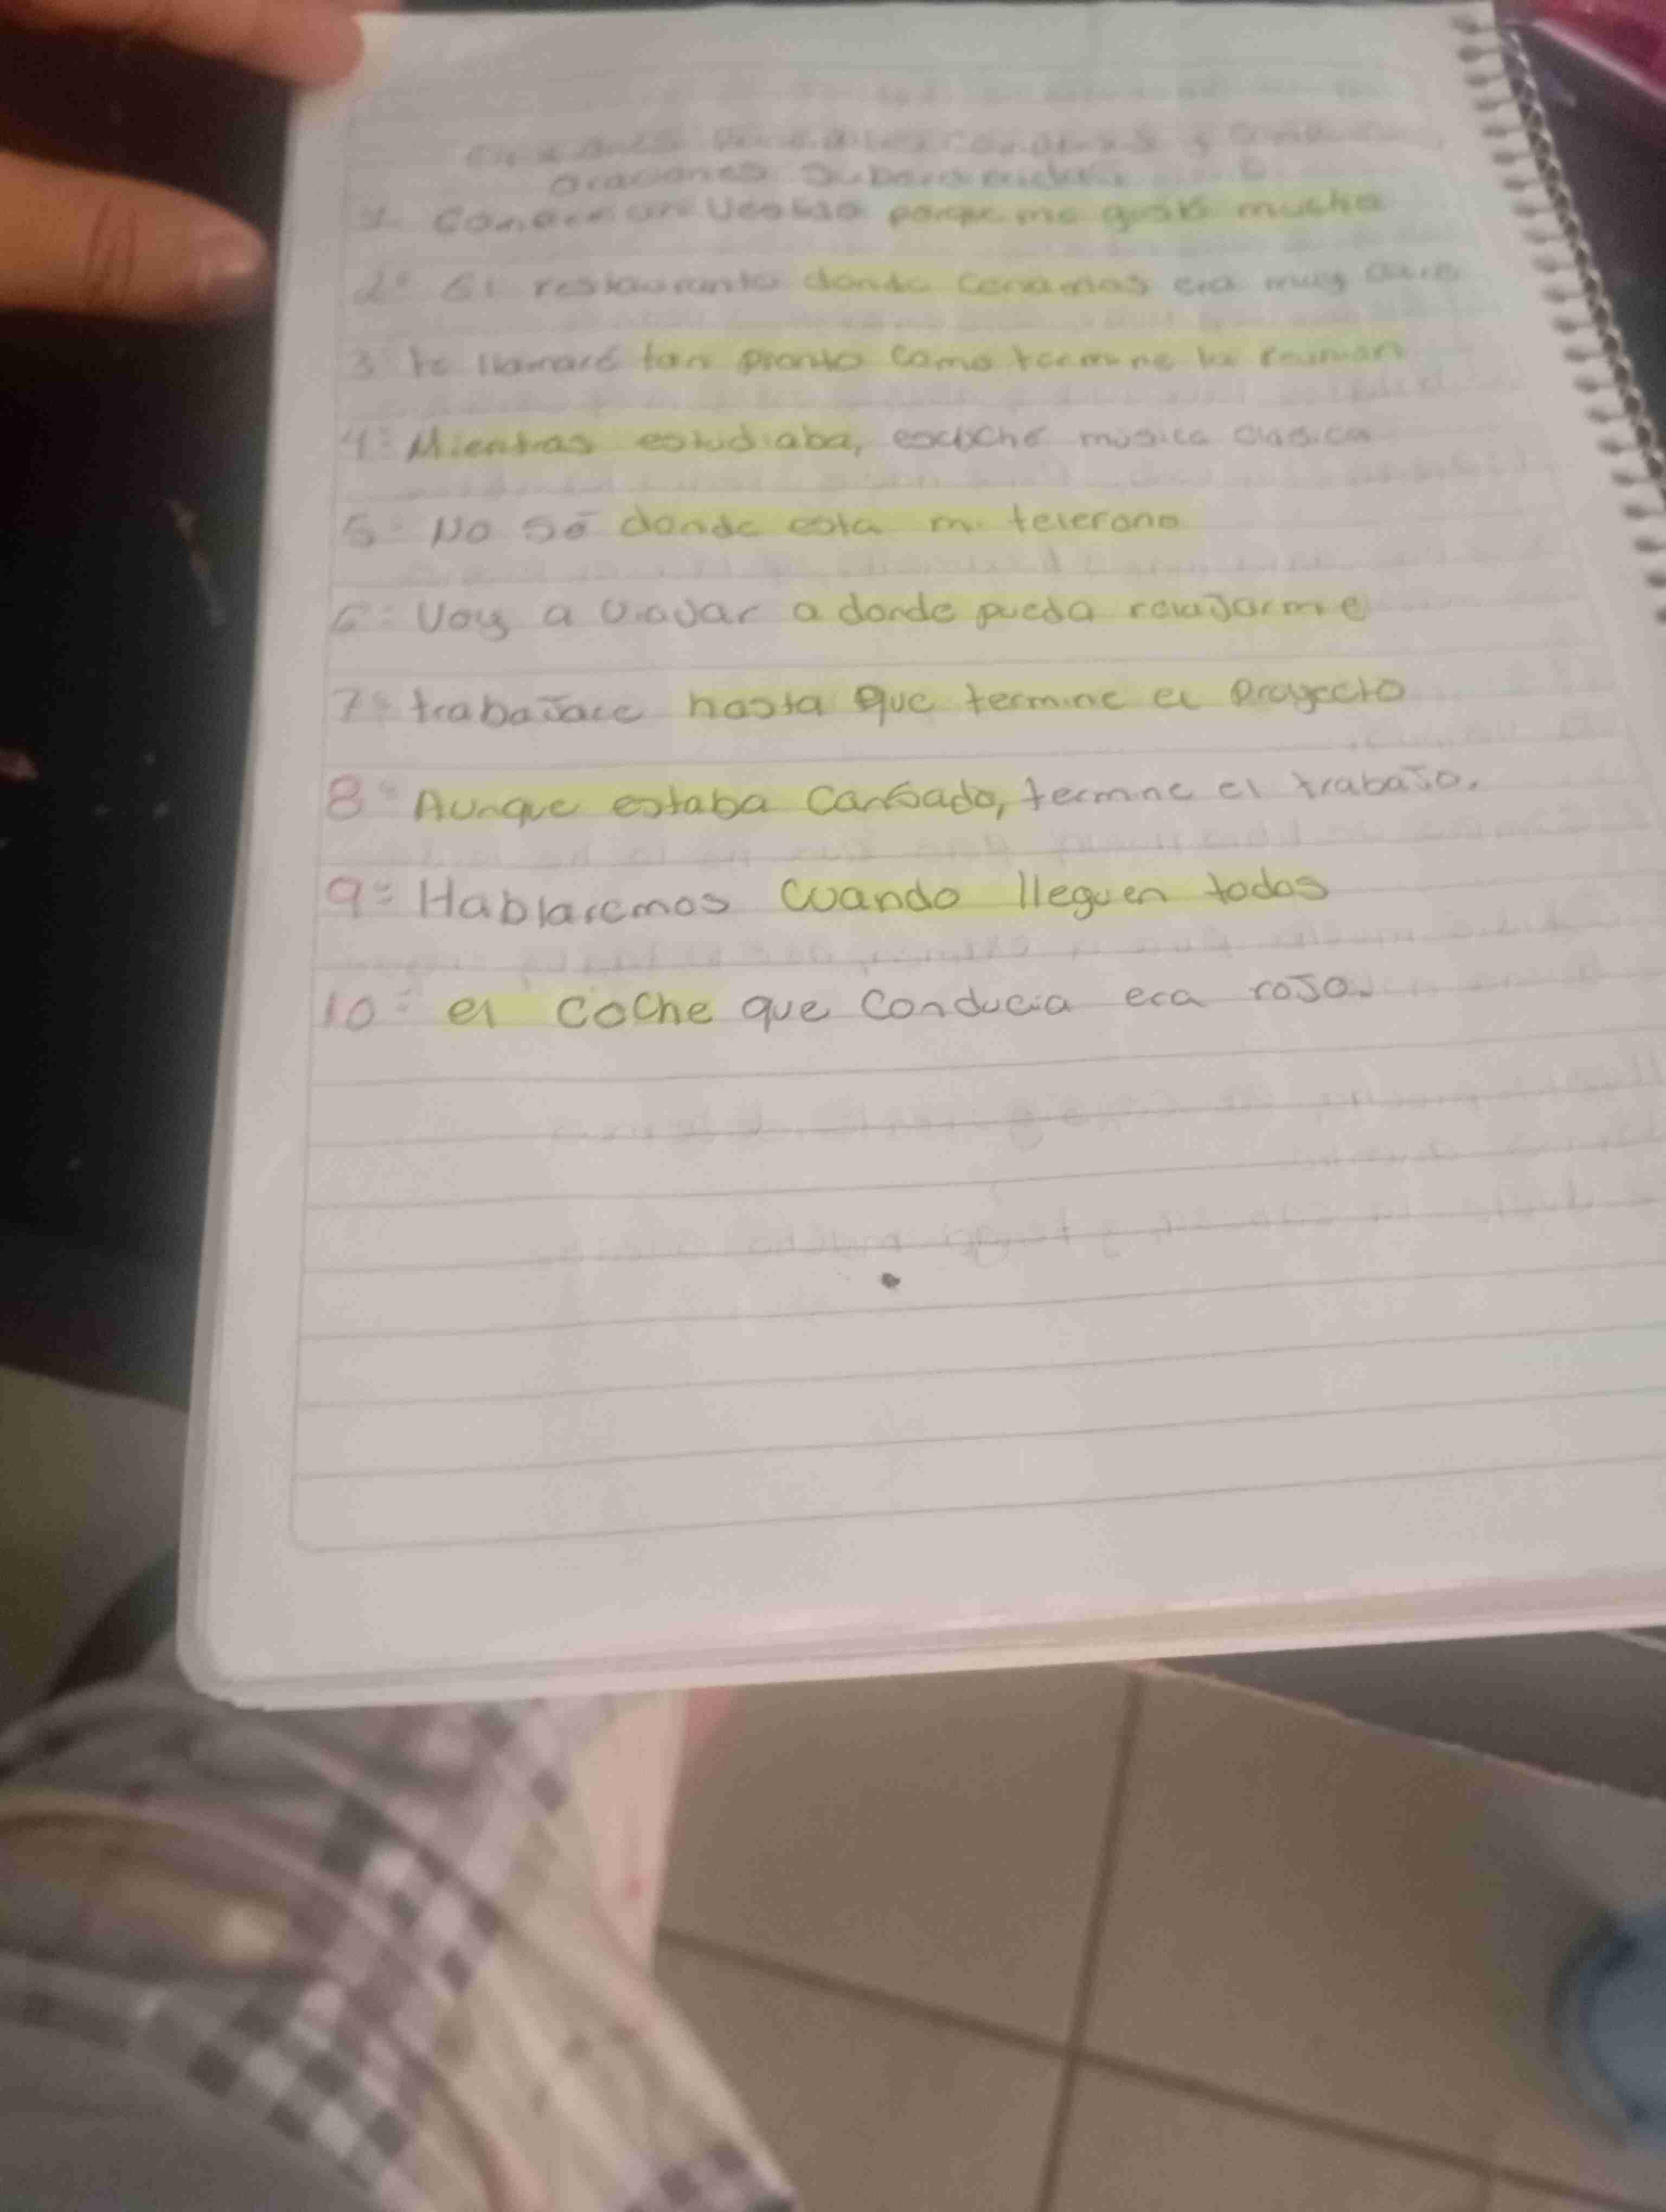 oraciones
1- un vestido porque me gustó mucho
2- El restaurante donde cenamos era muy
3- te llamaré tan pronto como termine la reunion
4- Mientras estudiaba, escuché música clasica
5- No sé donde esta mi telefono
6- Voy a viajar a donde pueda relajarme
7- trabajare hasta que termine el proyecto
8- Aunque estaba cansado, termine el trabajo.
9- Hablaremos cuando lleguen todos
10- el coche que conducia era rojo.